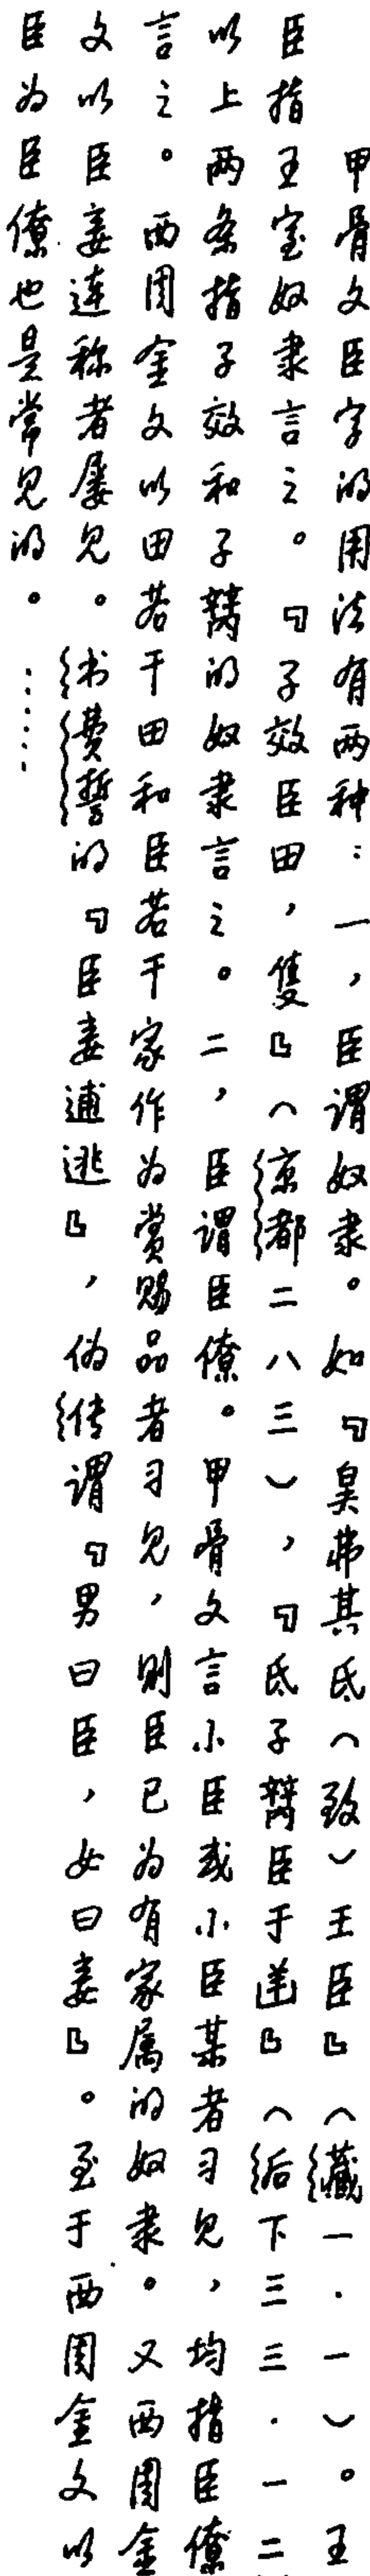 甲骨文臣字的用法有两种：一，臣谓奴隶。如『昊弗其氐（致）王臣』（藏一·一）。王
臣指王室奴隶言之。『子效臣田，隻』（京都二八三），『氐子臣于』（后下三三·一二
以上两条指子效和子的奴隶言之。二，臣谓臣僚。甲骨文言小臣或小臣某者习见，均指臣僚
言之。西周金文以田若干田和臣若干家作为赏赐品者习见，则臣已为有家属的奴隶。又西周金
文以臣妾连称者屡见。书费誓的『臣妾逋逃』，伪传谓『男曰臣，女曰妾』。至于西周金文以
臣为臣僚也是常见的。……